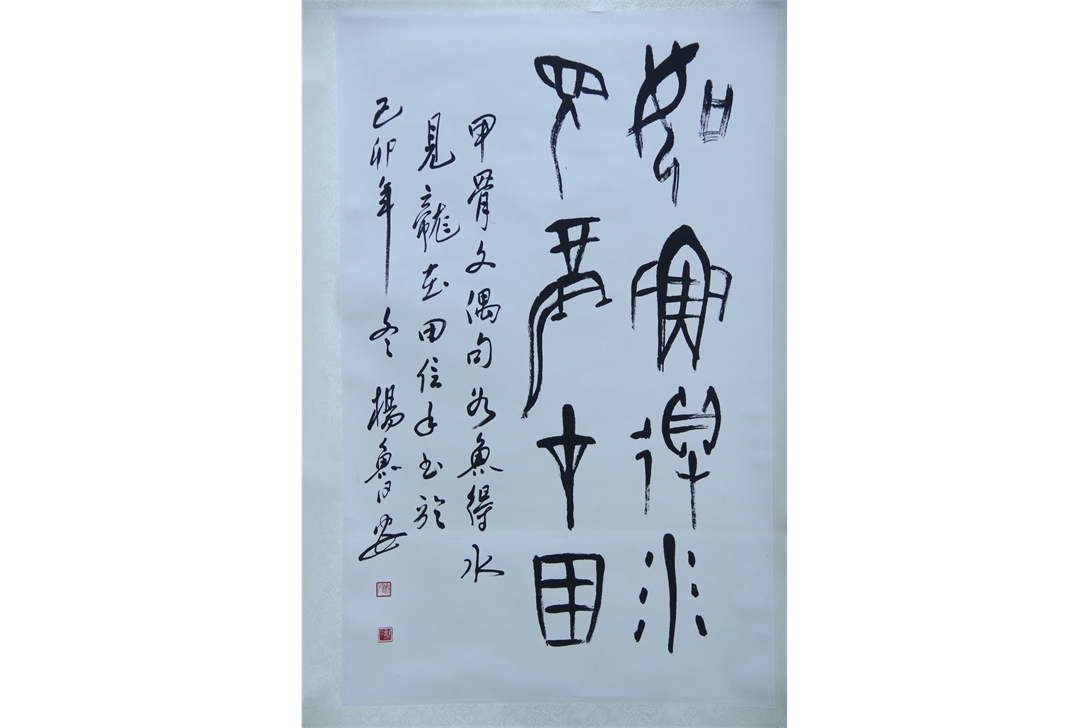 如魚得水
見龍在田
甲骨文偶句如魚得水
見龍在田信手书於
己卯年冬楊魯安